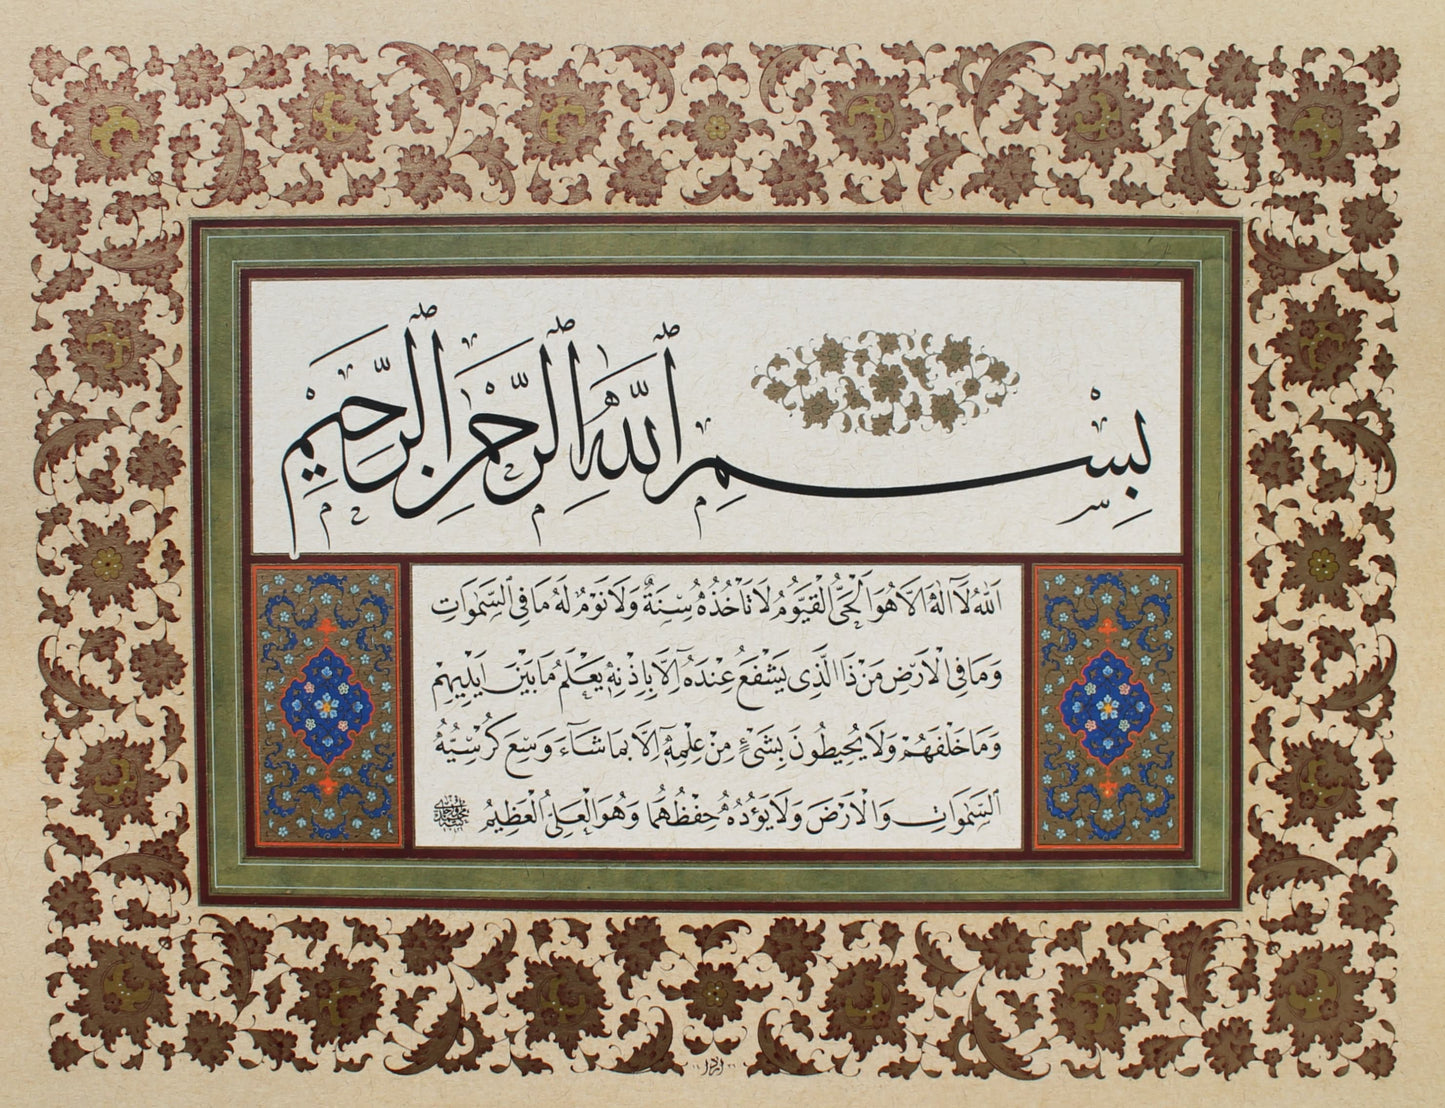 بِسْمِ ٱللَّهِ ٱلرَّحْمٰنِ ٱلرَّحِيْمِ
اَللّٰهُ لَآ اِلٰهَ اِلَّا هُوَ اَلْحَىُّ الْقَيُّومُ لَا تَأْخُذُهُ سِنَةٌ وَلَا نَوْمٌ لَهُ مَا فِى السَّمٰوَاتِ
وَمَا فِى الْاَرْضِ مَنْ ذَا الَّذِى يَشْفَعُ عِنْدَهُ اِلَّا بِاِذْنِهٖ يَعْلَمُ مَا بَيْنَ اَيْدِيهِمْ
وَمَا خَلْفَهُمْ وَلَا يُحِيطُونَ بِشَىْءٍ مِنْ عِلْمِهٖ اِلَّا بِمَا شَآءَ وَسِعَ كُرْسِيُّهُ
السَّمٰوَاتِ وَالْاَرْضَ وَلَا يَؤُدُهُ حِفْظُهُمَا وَهُوَ الْعَلِىُّ الْعَظِيمُ